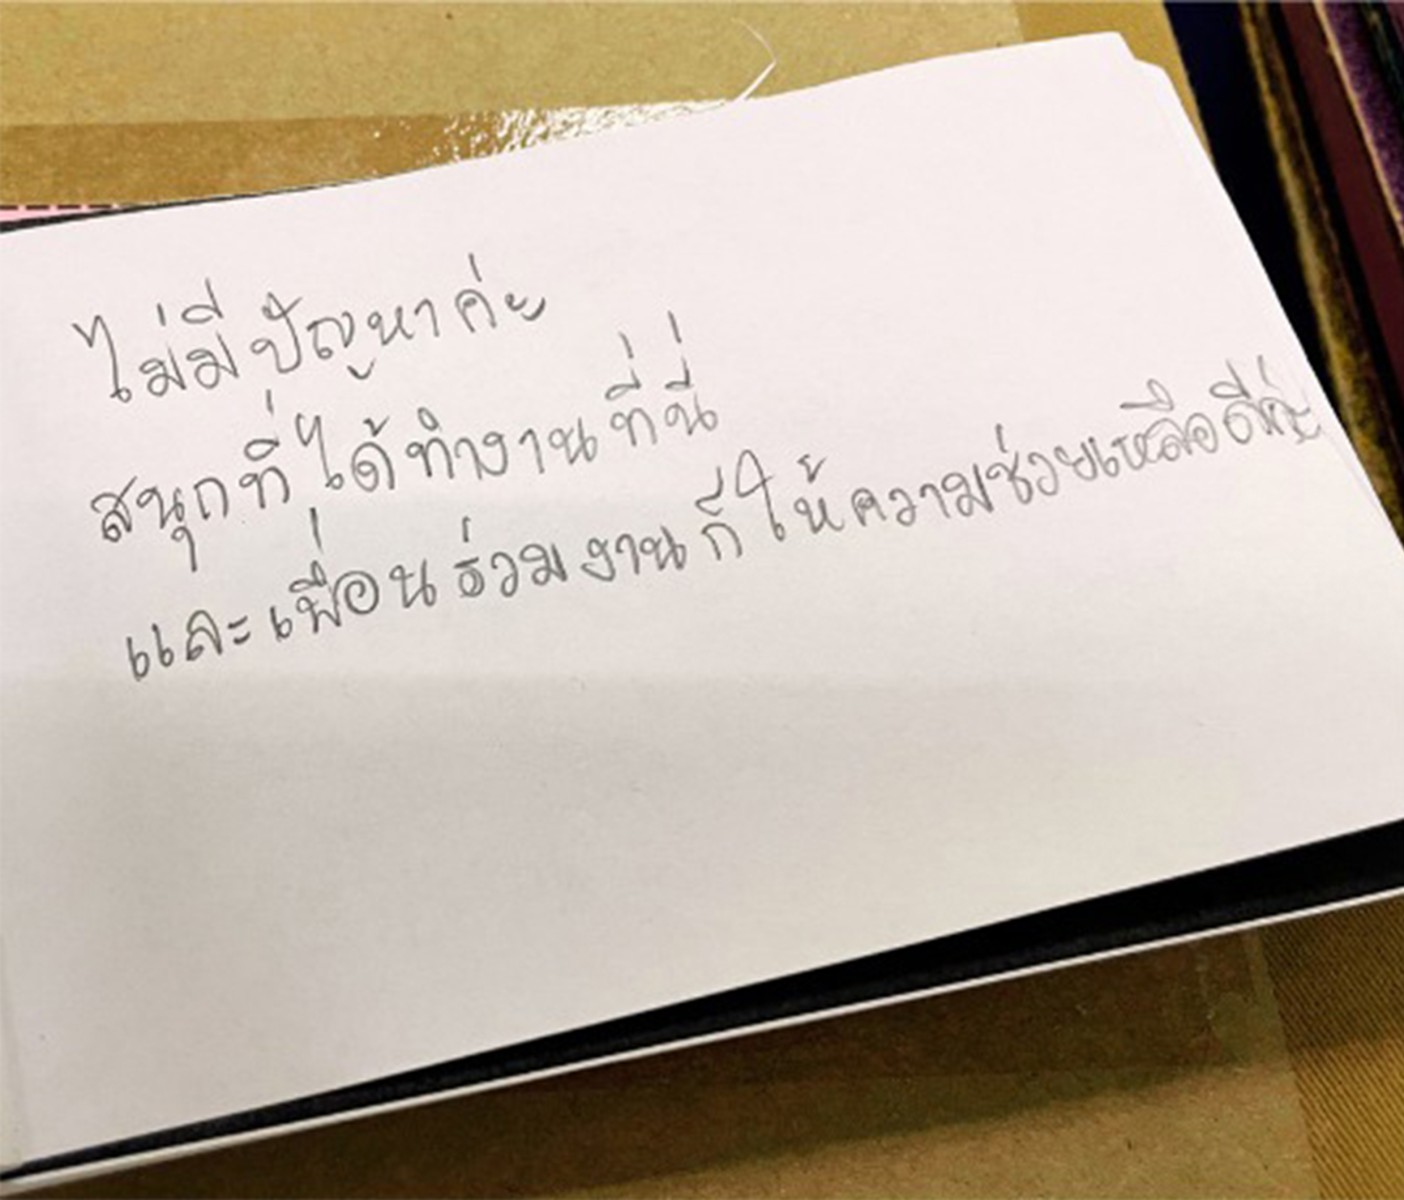 ไม่มีปัญหาค่ะ
สนุกที่ได้ทำงานที่นี่
และเพื่อนร่วมงานก็ให้ความช่วยเหลือดีค่ะ